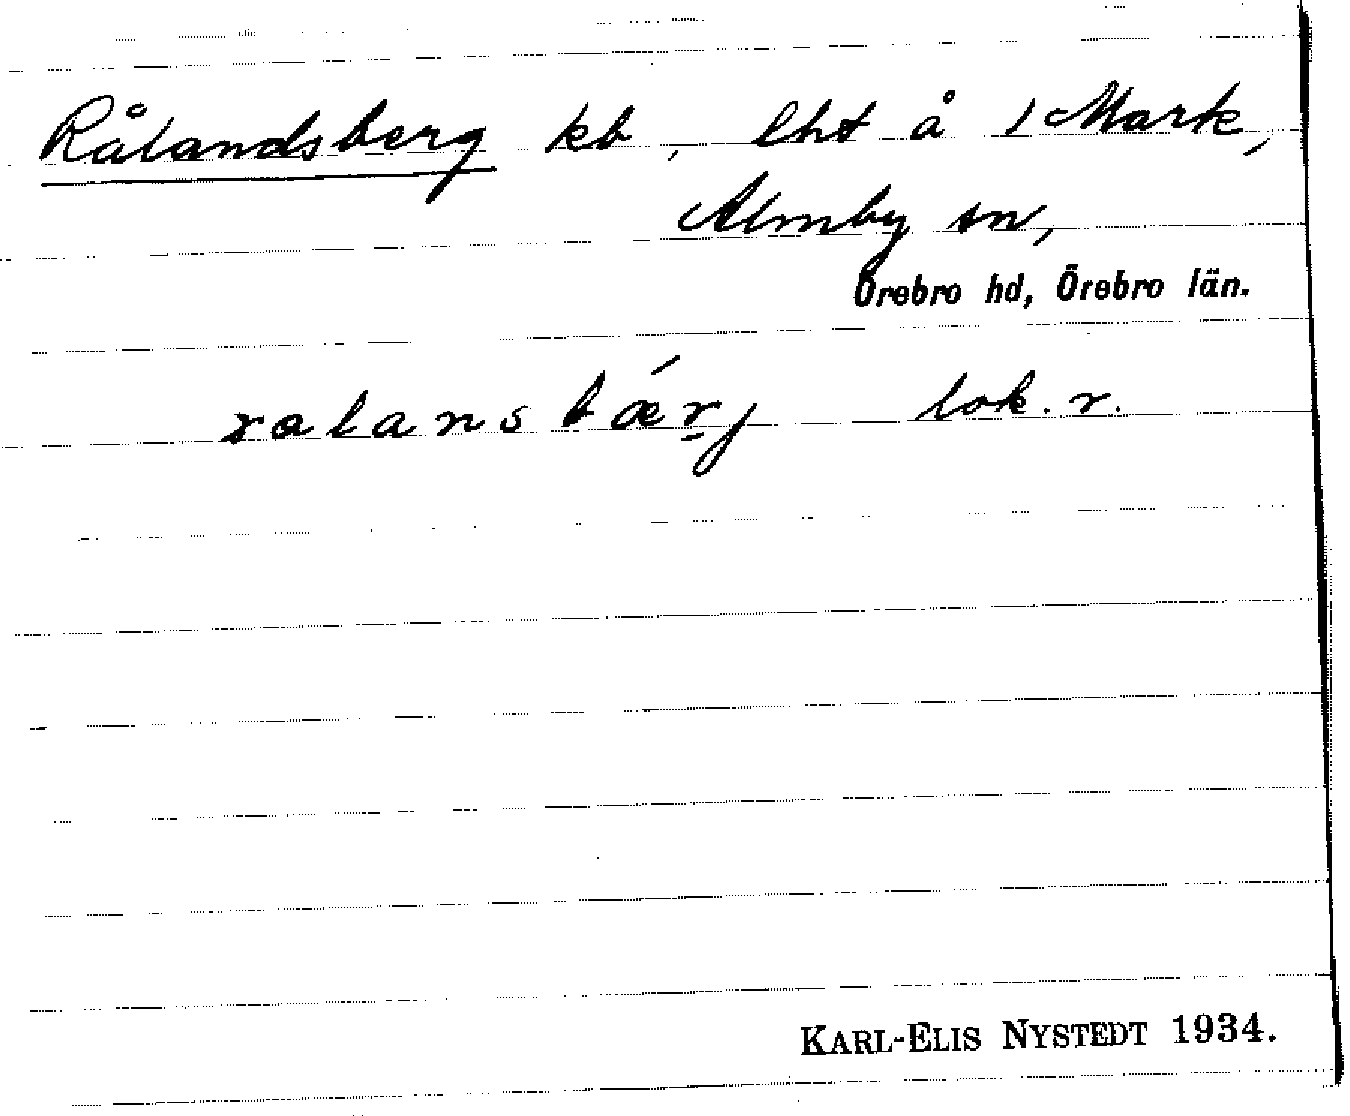 Rålandsberg kb, lht å 1 Mark,
Almby sn,
Örebro hd, Örebro län.
ralansbǽrj lok. r.
KARL-ELIS NYSTEDT 1934.